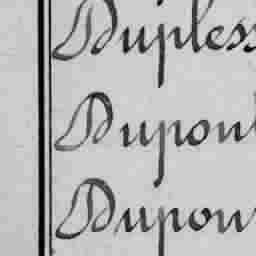 Dupless
Dupont
Dupon